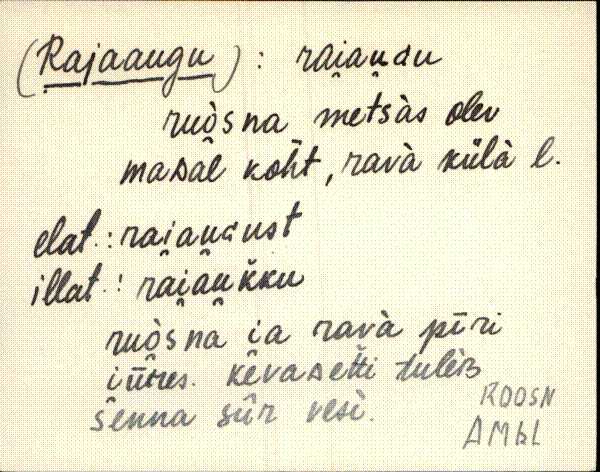 (Rajaaugu) : raiaudu
ruòsna metsàs olev
masal koht, ravà külà l.
elat. : raiaudust
illat. : raiaukku
ruòsna ia ravà pīri
kevasetti tuleb
senna sūr vesi.
ROOSN
AMbL